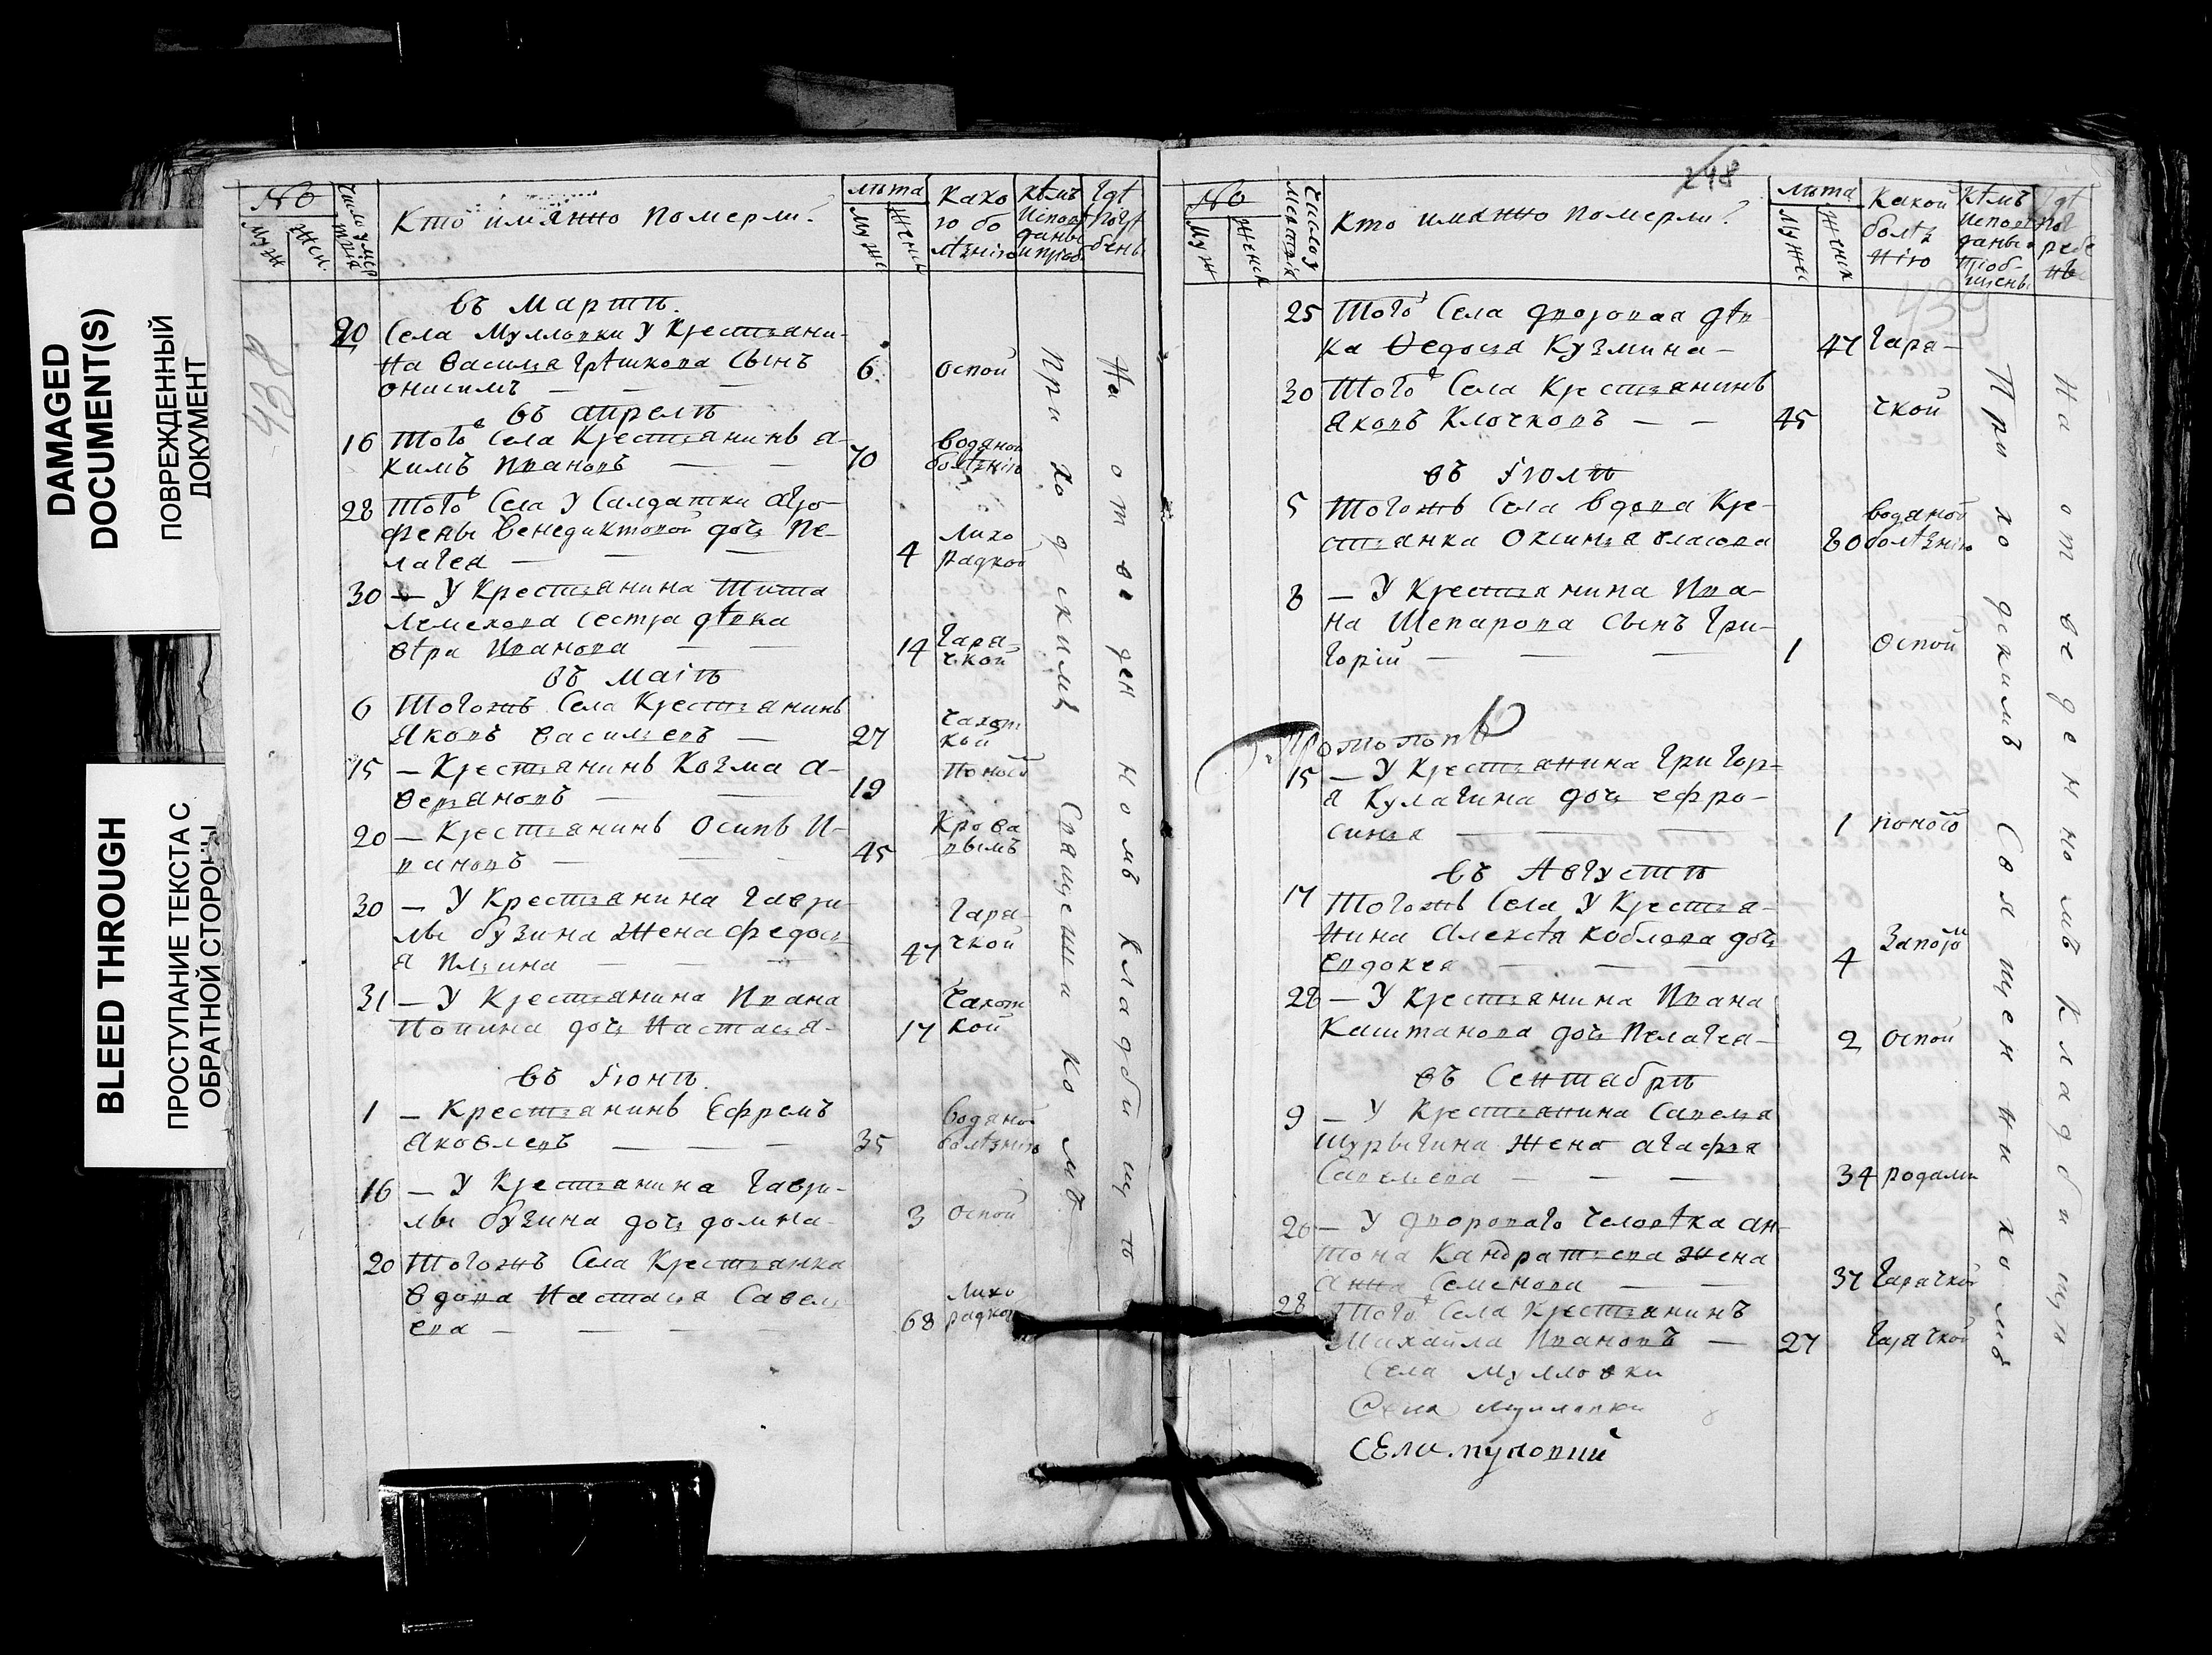 DAMAGED
DOCUMENT(S)
ПОВРЕЖДЕННЫЙ
ДОКУМЕНТ
BLEED THROUGH
ПРОСТУПАНИЕ ТЕКСТА С
ОБРАТНОЙ СТОРОНЫ
438
№
Муж
Жен.
Кто имянно померли?
лѣта
Муж
Женск
Како
го бо
лѣзнію
Кѣмъ
Где
Погр
бены
въ Мартѣ.
20 Села Мулловки у Крестьяни-
на Василья Грѣшнова Сынъ
Онисимъ — — — 6 оспой
въ апрелѣ
16 Того Села Крестьянинъ а-
кимъ Ивановъ — — 70 водяной болѣзнію
28 Того Села у Салдатки Агро-
фены Венедиктовой дочь Пе-
лагея — — — 4 лихо радкой
30 — У Крестьянина Тита
Лемехова сестра дѣвка
вѣра Иванова — — 14 Гаря- чкой
въ Маiѣ
6 Тогожъ Села Крестьянинъ
Яковъ Васильевъ — 27 Чахот кой
15 — Крестьянинъ Козма а-
верьяновъ — — 19 Поносо
20 — Крестьянинъ Осипъ И-
вановъ — — — 45 Крова вымъ
30 — У Крестьянина Гаври-
лы бузина Жена Федось
я Ильина — — — 47 Гаря- чкой
31 — У Крестьянина Ивана
Попина дочь Настасья — 17 Чахот кой
въ Iюнѣ.
1 — Крестьянинъ Ефремъ
Яковлевъ — — — 35 водяной болѣзнію
16 — У Крестьянина Гаври-
лы бузина дочь домна — 3 Оспой
20 Тогожъ Села Крестьянка
вдова Настасья Савель
ева — — — — 68 Лихо радкой
Приходскимъ Священникомъ
На отведенномъ кладбищѣ
248
439
№
Муж
Женск
Кто имянно померли?
лѣта
Муж
Женск
Какой
болѣз
нію
Кѣмъ
Где
25 Того Села дворовая дѣв
ка Ѳедосья Кузмина — 47 Гаря-
30 Того Села Крестьянинъ
Яковъ Клочковъ — — 45 чкой
въ Iюлѣ
5 Тогожъ Села вдова Кре-
стьянка Оксинья власова 80 водяной болѣзнію
8 — У Крестьянина Ива-
на Шепарова Сынъ Гри-
горiй — — — 1 Оспой
15 — У Крестьянина Григор-
я Кулагина дочь Ефро-
синья — — — 1 поносо
въ Августѣ
17 Тогожъ Села У Крестья-
нина Алексѣя Коблова дочь
Евдокея — — — 4 Запой
28 — У Крестьянина Ивана
Каштанова дочь Пелагея — 2 Оспой
въ Сентябрѣ
9 — У Крестьянина Савелья
Шурыгина Жена агафья
Савельева — — — 34 родами
20 — У двороваго Человѣка ан
тона Кандратьева Жена
Анна Семенова — — 37 Гарячкой
28 Того Села Крестьянинъ
Михайла Ивановъ — 27 Гарячкой
Села Мулловки
Села Мулловки
Приходскимъ Священникомъ
На отведенномъ Кладбищи